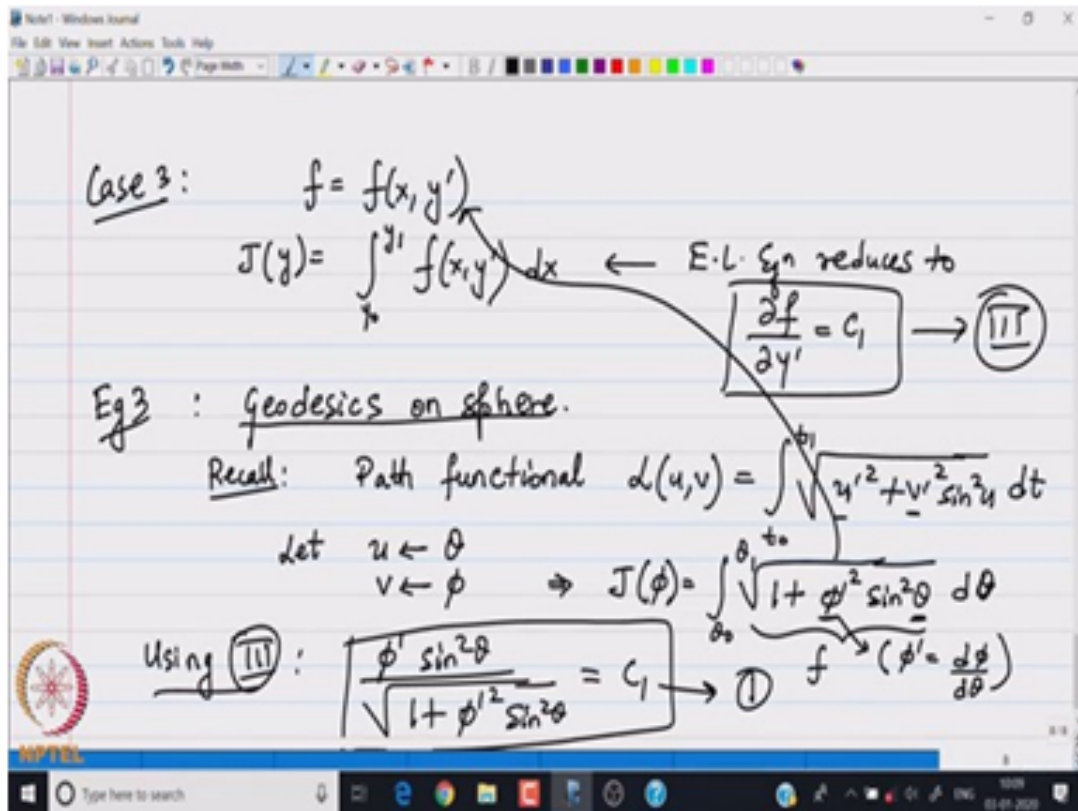 Note1 - Windows Journal
File Edit View Insert Actions Tools Help
Page Width
Case 3: f = f(x, y')
J(y) = ∫_{x₀}^{y₁} f(x, y') dx ← E.L. Eqn reduces to
∂f/∂y' = C₁ → III
Eg 3 : Geodesics on sphere.
Recall: Path functional L(u,v) = ∫_{t₀}^{t₁} √(u'² + v'² sin²u) dt
Let u ← θ
v ← ϕ ⇒ J(ϕ) = ∫_{θ₀}^{θ₁} √(1 + ϕ'² sin²θ) dθ
f (ϕ' = dϕ/dθ)
Using III : ϕ' sin²θ / √(1 + ϕ'² sin²θ) = C₁ → ①
NPTEL
Type here to search
ENG
10:09